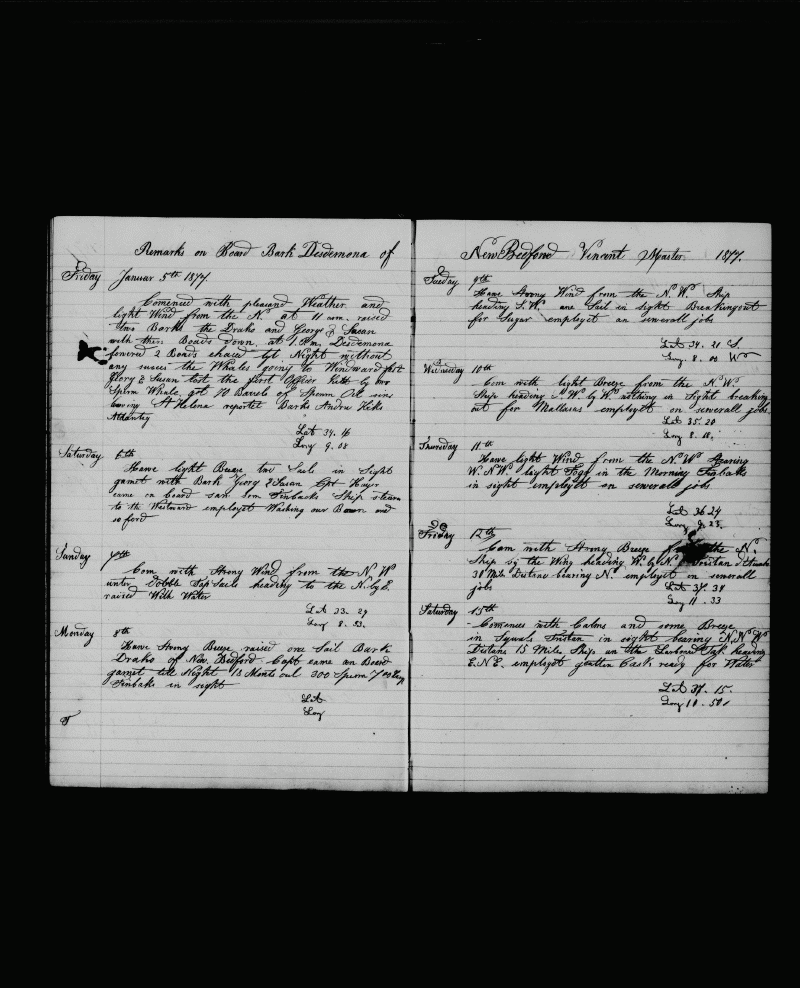 Remarks on Board Bark Desdemona of
Friday Januar 5th 1877.
Comenced with pleasend Weather and
light Wind from the N. at 11 am. raised
two Barks the Drako and George & Susan
with there Boads down at 1 P.m. Desdemona
lowered 2 Boads chaced till Night without
any succes the Whales going to Windward
Geory & Susan lost the first Officer by
Sperm Whale, got 70 Barels of Sperm Oil sins
leaving St Helena reportet Barks Andru Hiks
Atlantig
Lat 34. 16
Long 9. 08
Saturday 6th
Have light Breze two Sails in Sight
gamet with Bark Geory & Susan Cpt Hayer
came on board saw som Finbacks Ship steern
to the Westward employet Washing our and
so ford
Sunday 7th
Com with Strong Wind from the N. W.
unter Dobble Topsails heading to the N. by E.
raised With Water
Lat 33. 29
Long 8. 53.
Monday 8th
Have Strong Breeze raised one Sail Bark
Drako of New Bedford Capt came an Board
gamet till Night 13 Monts out 300 Sperm 700
Finbaks in sight
Lat
Long
New Bedford Vincent Master 1877.
Tuesday 9th
Have Strong Wind from the N. W. Ship
heading S.W. one Sail in sight Breakingout
for Sugar employet an severall jobs
Lat 34. 21 S.
Long. 8. 03 W
Wednesday 10th
Com with light Breeze from the N. W.
Ship heading S. W. by W. nothing in Sight breaking
out for Mallasas employet on severall jobs
Lat 35. 20
Long 8. 18.
Thursday 11th
Have light Wind from the N. W. Stearing
W. N. W. light Fogg in the Morning Finbaks
in sight employet on severall jobs
Lat 36 24
Long 9. 23.
Friday 12th
Com with Strong Breeze from the N.
Ship by the Wing heading W. by N. Tristan d'Acunha
30 Mile Distans bearing N. employet on severall
jobs
Lat 37. 34
Long 11. 33
Saturday 13th
Comences with Calms and some Breeze
in Sqwals Tristan in sight bearing N. N. W.
Distans 15 Mils, Ship on the Larbord Tak heading
E.N.E. employet getten Cask ready for Water
Lat 37. 15.
Long 11. 50